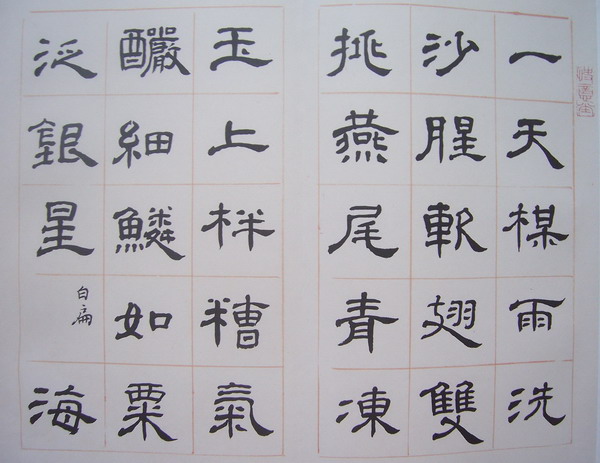 一天楳雨洗
沙腥軟翅雙
挑燕尾青凍
玉上柈糟氣
釅細鱗如粟
泛銀星
白扁
海